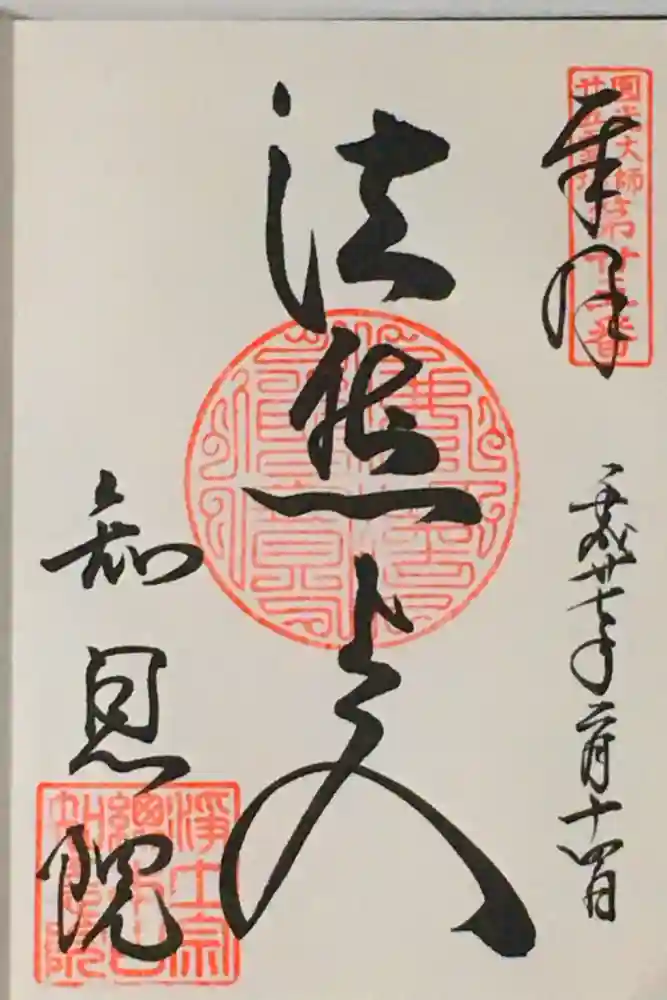 圓光大師
廿五霊場
第廿五番
奉拝
平成廿七年二月十四日
法然上人
知恩院
淨土宗
總本山
知恩院